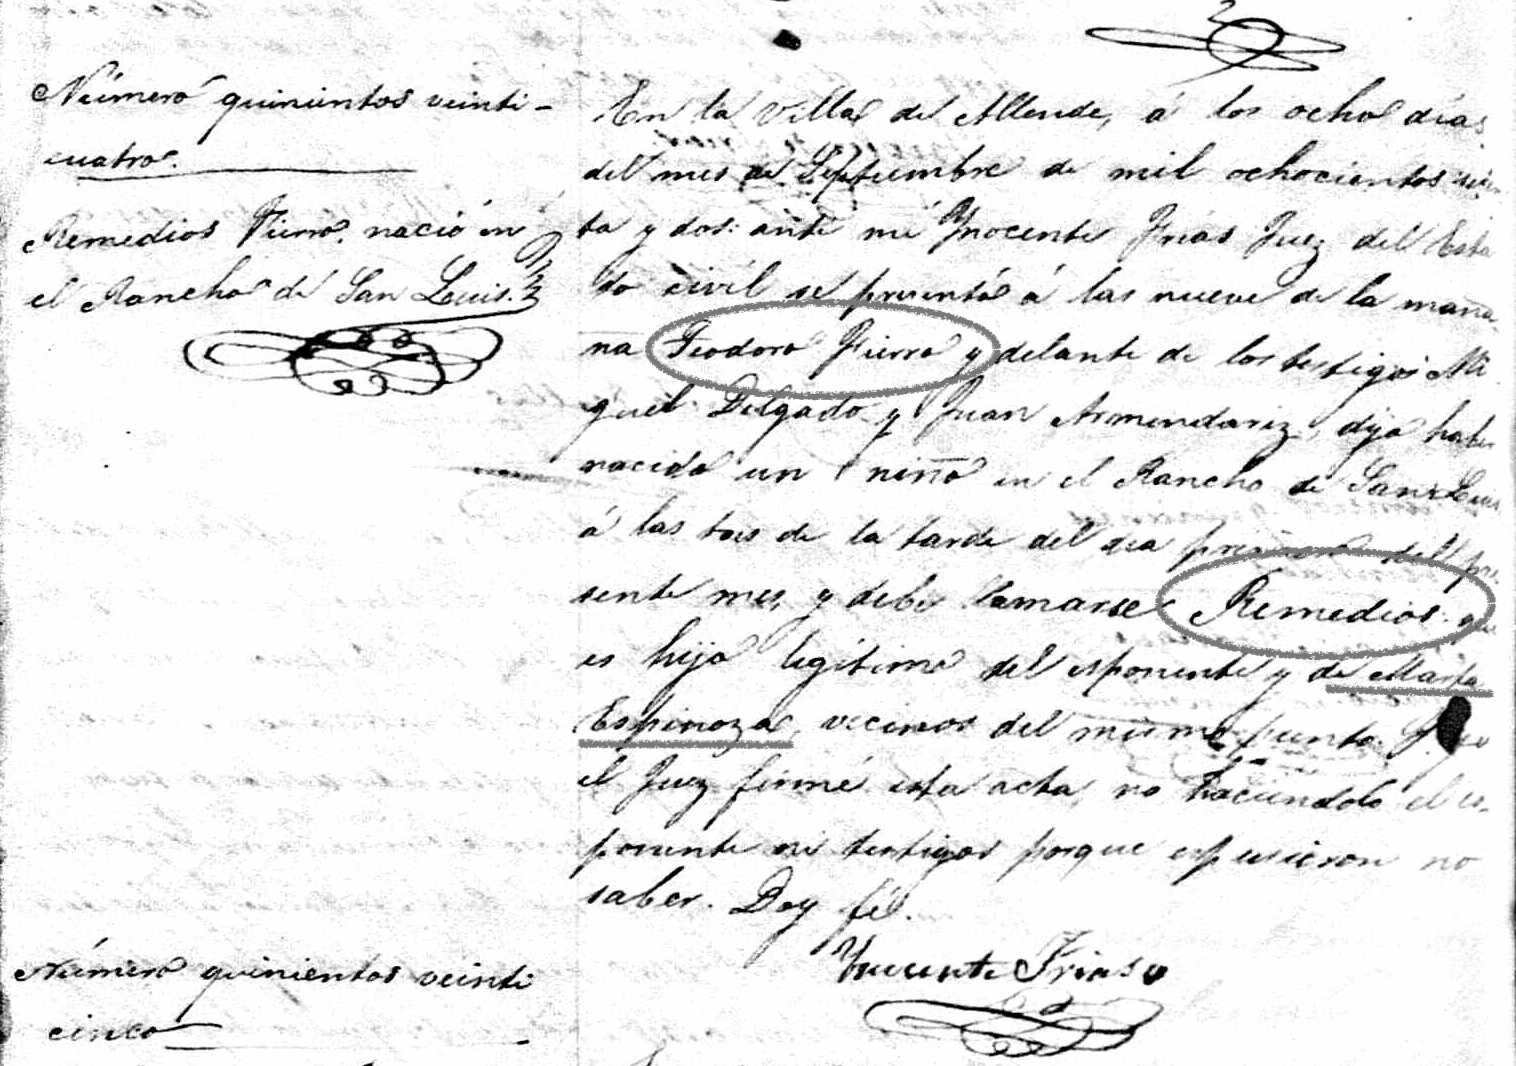 Número quinientos veinti-
cuatro.
Remedios Fierro. nació en
el Rancho de San Luis.
En la Villa de Allende, á los ocho días
del mes de Septiembre de mil ochocientos
ta y dos: ante mí Ynocente Frias Juez del Esta
do civil se presentó á las nueve de la maña
na Teodoro Fierro y delante de los testigos Mi
guel Delgado y Juan Armendariz, dijo haber
nacido un niño en el Rancho de San Luis
á las tres de la tarde del dia primero del pre
sente mes, y debe llamarse Remedios que
es hijo legítimo del esponente y de Marta
Espinoza, vecinos del mismo punto. Y yo
el Juez firmé esta acta, no haciéndolo el es-
ponente ni testigos porque espusieron no
saber. Doy fé.
Ynocente Frias
Número quinientos veinti
cinco